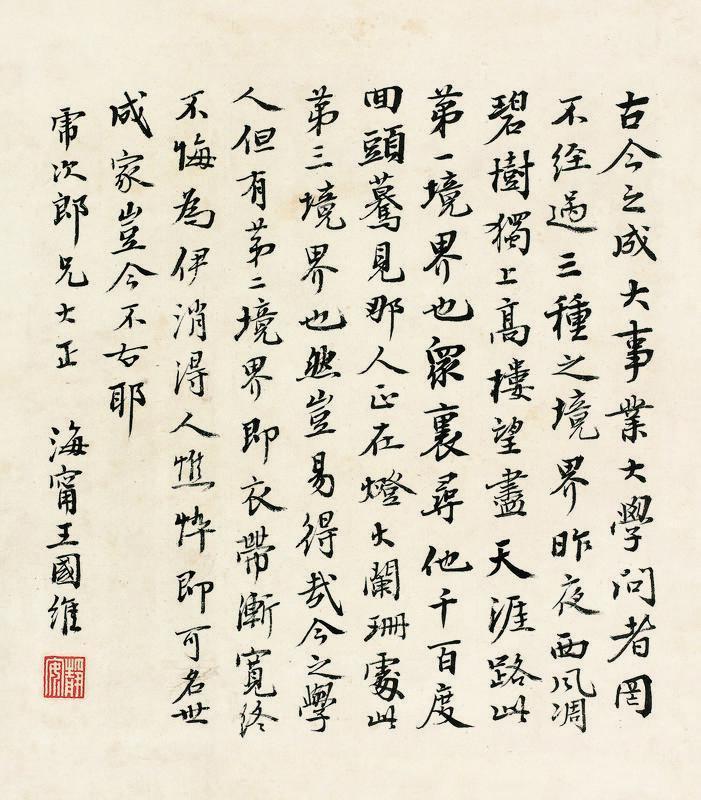 古今之成大事業大學問者罔
不经過三種之境界昨夜西风凋
碧樹獨上高樓望盡天涯路此
第一境界也眾裏尋他千百度
回頭驀見那人正在燈火闌珊處此
第三境界也然豈易得哉今之學
人但有第二境界即衣帶漸寬終
不悔為伊消得人憔悴即可名世
成家豈今不古耶
虎次郎兄大正
海甯王國維
靜安